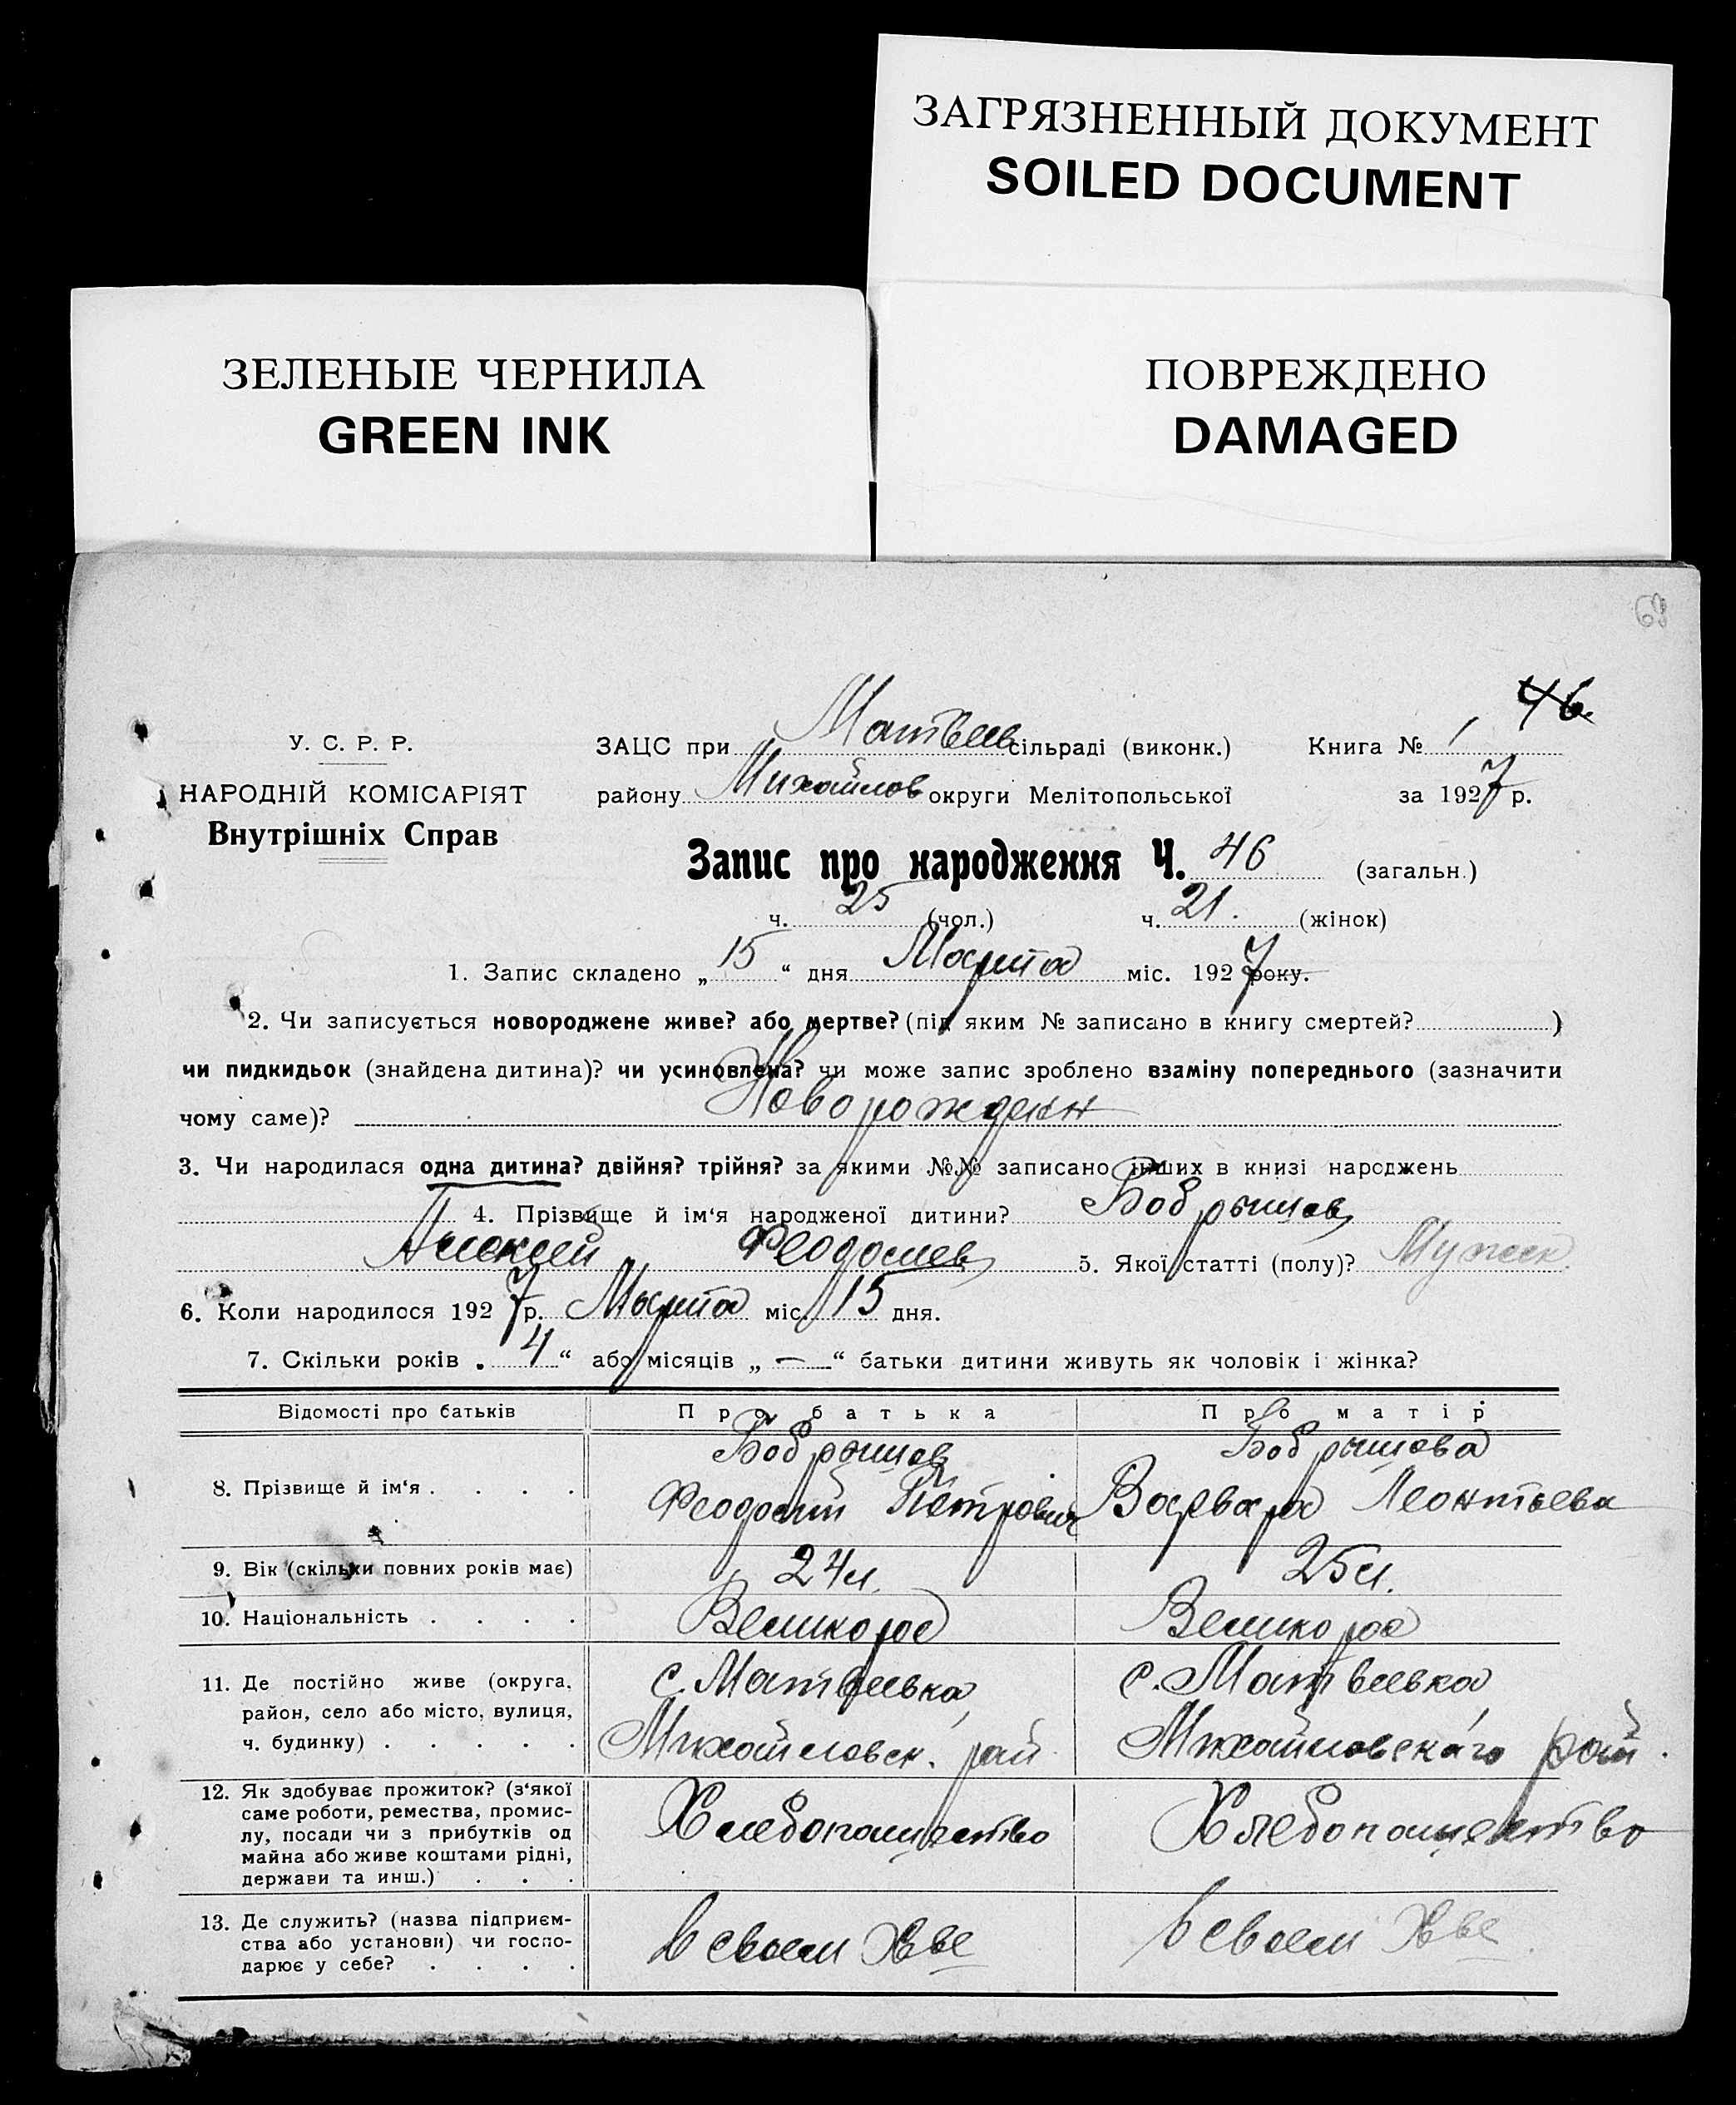 ЗАГРЯЗНЕННЫЙ ДОКУМЕНТ
SOILED DOCUMENT
ЗЕЛЕНЫЕ ЧЕРНИЛА
GREEN INK
ПОВРЕЖДЕНО
DAMAGED
69
46.
У. С. Р. Р.
НАРОДНІЙ КОМІСАРІЯТ
Внутрішніх Справ
ЗАЦС при Матвеев сільраді (виконк.) Книга № 1
району Михайлов округи Мелітопольської за 1927 р.
Запис про народження Ч. 46 (загальн.)
ч. 25 (чол.) ч. 21. (жінок)
1. Запис складено „ 15 “ дня Марта міс. 1927 року.
2. Чи записується новороджене живе? або мертве? (під яким № записано в книгу смертей? )
чи пидкидьок (знайдена дитина)? чи усиновлена? чи може запис зроблено взаміну попереднього (зазначити
чому саме)? Новорожден
3. Чи народилася одна дитина? двійня? трійня? за якими №№ записано інших в книзі народжень
4. Прізвище й ім‘я народженої дитини? Бобрышев
Алексей Феодосиев 5. Якої статті (полу)? Мужск.
6. Коли народилося 1927 р. Марта міс. 15 дня.
7. Скільки років „ 4 “ або місяців „ — “ батьки дитини живуть як чоловік і жінка?
Відомості про батьків Про батька Про матір
8. Прізвище й ім‘я . . . . Бобрышев Бобрышева
Феодосий Петрович Варвара Леонтьева
9. Вік (скільки повних років має) 24 л. 25 л.
10. Національність . . . . Великорос Великорос
11. Де постійно живе (округа, с. Матвеевка с. Матвеевка
район, село або місто, вулиця,
ч. будинку) . . . . . Михайловск. рай Михайловскаго рай.
12. Як здобуває прожиток? (з‘якої
саме роботи, ремества, промис- Хлебопашество Хлебопашество
лу, посади чи з прибутків од
майна або живе коштами рідні,
держави та инш.) . . .
13. Де служить? (назва підприєм-
ства або установи) чи госпо- в своем Хве в своем Хве
дарює у себе? . . . .